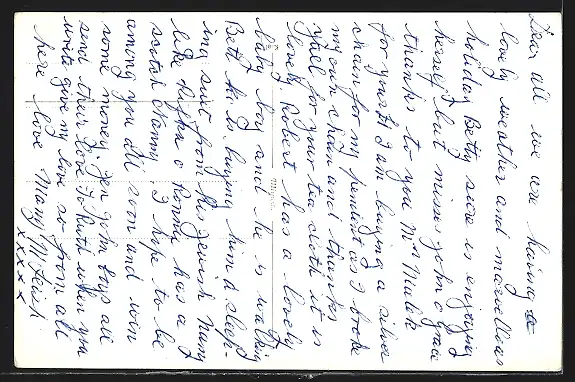 Dear all we are haing a
lovely weather and marvellous
holiday Betty sure is enjoying
herself but misses john o Grace
thanks to you Mrs
for yours I am buying a silver
chain for my pendent as I broke
my own chain and thanks
for your tea cloth it is
lovely. Robert has a lovely
baby boy and he is walking
Betty is buying him a sleep-
ing suit from his jewish Nany
like Ronnie has a
scotch Nanny. I hope to be
among you all soon and win
some money. Jen john boys all
send their love to Ruth when you
write give my love so from all
here love Mary M
xxxx